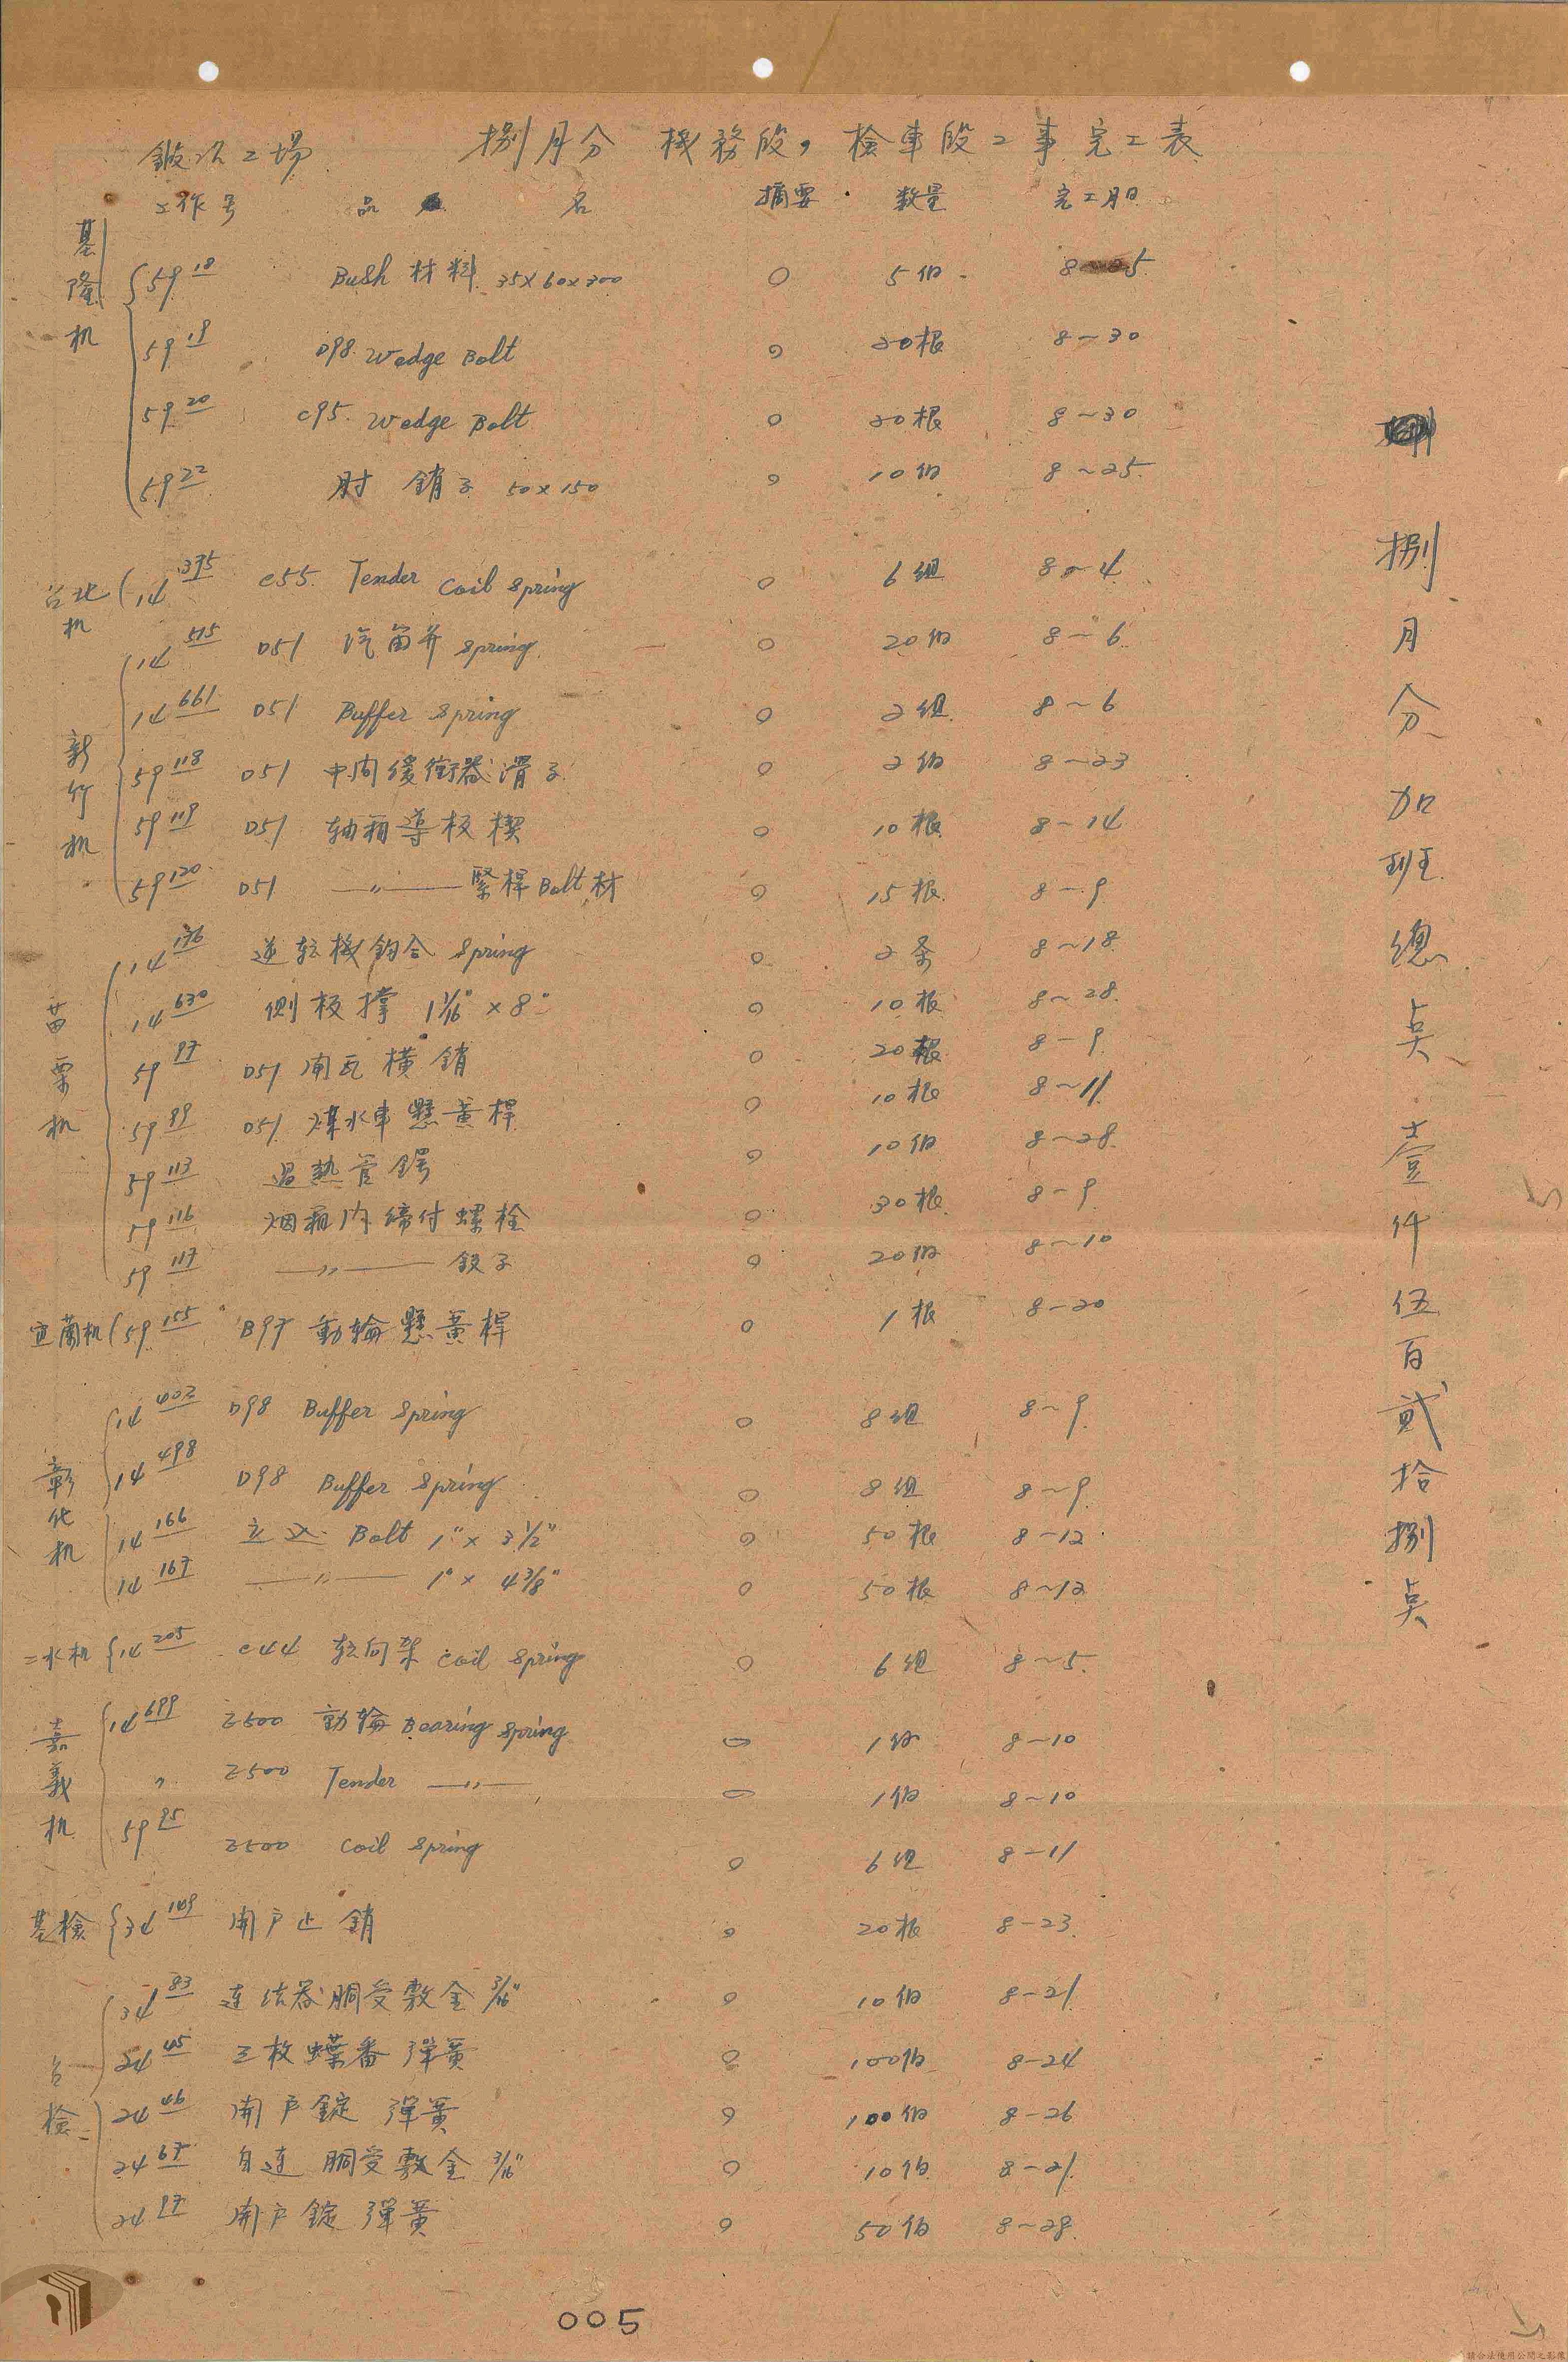 鍛冶工場 捌月分 機務段,檢車段工事完工表
工作号 品 名 摘要 数量 完工月日
基隆机
59 18 Bush 材料 35×60×300 〇 5個 8 5
59 19 D98 Wedge Bolt 〇 20根 8~30
59 20 C95 Wedge Bolt 〇 20根 8~30
59 22 肘 銷子 50×150 〇 10個 8~25
台北机
14 395 C55 Tender Coil Spring 〇 6組 8~4
新竹机
14 515 D51 汽笛弁 Spring 〇 20個 8~6
14 661 D51 Buffer Spring 〇 2組 8~6
59 118 D51 中間緩衝器滑子 〇 2個 8~23
59 119 D51 轴箱導板楔 〇 10根 8~14
59 120 D51 —〃— 緊桿Bolt材 〇 15根 8~9
苗栗机
14 136 逆転機鈎合 Spring 〇 2条 8~18
14 630 側板撑 1 1/16"×8" 〇 10根 8~28
59 97 D51 閘瓦橫銷 〇 20根 8~9
59 99 D51 煤水車懸簧桿 〇 10根 8~11
59 113 過熱管鍔 〇 10個 8~28
59 116 烟箱内締付螺栓 〇 30根 8~9
59 117 —〃— 鉸子 〇 20個 8~10
宜蘭机
59 155 B97 動輪懸簧桿 〇 1根 8~20
彰化机
14 402 D98 Buffer Spring 〇 8組 8~9
14 498 D98 Buffer Spring 〇 8組 8~9
14 166 立込 Bolt 1"×3 1/2" 〇 50根 8~12
14 167 —〃— 1"×4 3/8" 〇 50根 8~12
二水机
14 205 C44 転向架 Coil Spring 〇 6組 8~5
嘉義机
14 699 Z500 動輪 Bearing Spring 〇 1個 8~10
〃 Z500 Tender —〃— 〇 1個 8~10
59 95 Z500 Coil Spring 〇 6組 8~11
基檢
34 149 開戸止銷 〇 20根 8~23
台檢
34 83 連結器胴受敷金 3/16" 〇 10個 8~21
24 45 三枚蝶番彈簧 〇 100個 8~24
24 46 開戸錠 彈簧 〇 100個 8~26
24 67 自連 胴受敷金 3/16" 〇 10個 8~21
24 97 開戸錠 彈簧 〇 50個 8~28
捌月分 加班總点 壹仟伍百貳拾捌点
005